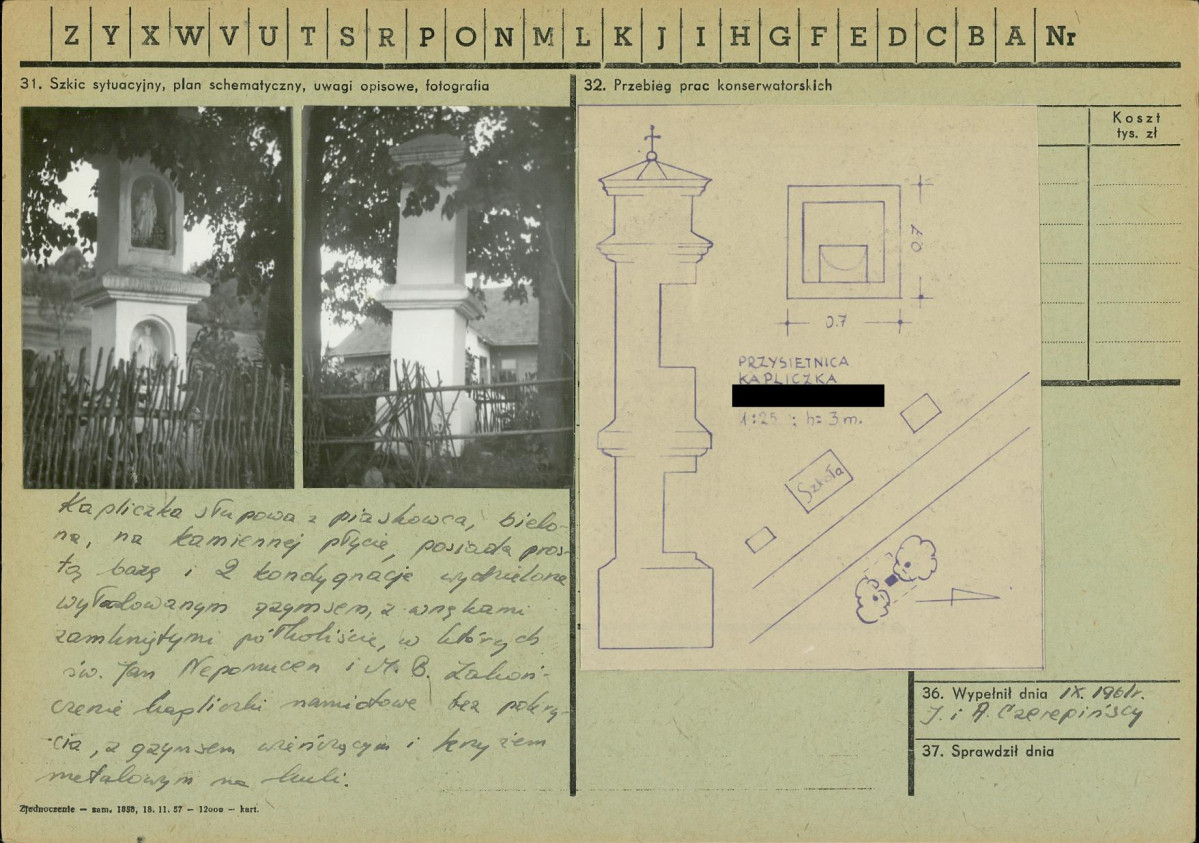 Z Y X W V U T S R P O N M L K J I H G F E D C B A Nr
31. Szkic sytuacyjny, plan schematyczny, uwagi opisowe, fotografia
32. Przebieg prac konserwatorskich
Koszt
tys. zł
0.7
0.7
PRZYSIETNICA
KAPLICZKA
1:25 ; h= 3m.
Szkoła
Kapliczka słupowa z piaskowca, bielo-
na, na kamiennej płycie, posiada pros-
tą bazę i 2 kondygnacje wydzielone
wyładowanym gzymsem, z wnękami
zamkniętymi półkoliście, w których
św. Jan Nepomucen i M. B. Zakoń-
czenie kapliczki namiotowe bez pokry-
cia, z gzymsem wieńczącym i krzyżem
metalowym na kuli.
36. Wypełnił dnia IX. 1961r.
J. i A. Czerepińscy
37. Sprawdził dnia
Zjednoczenie — zam. 1858, 18. 11. 57 — 12000 — kart.